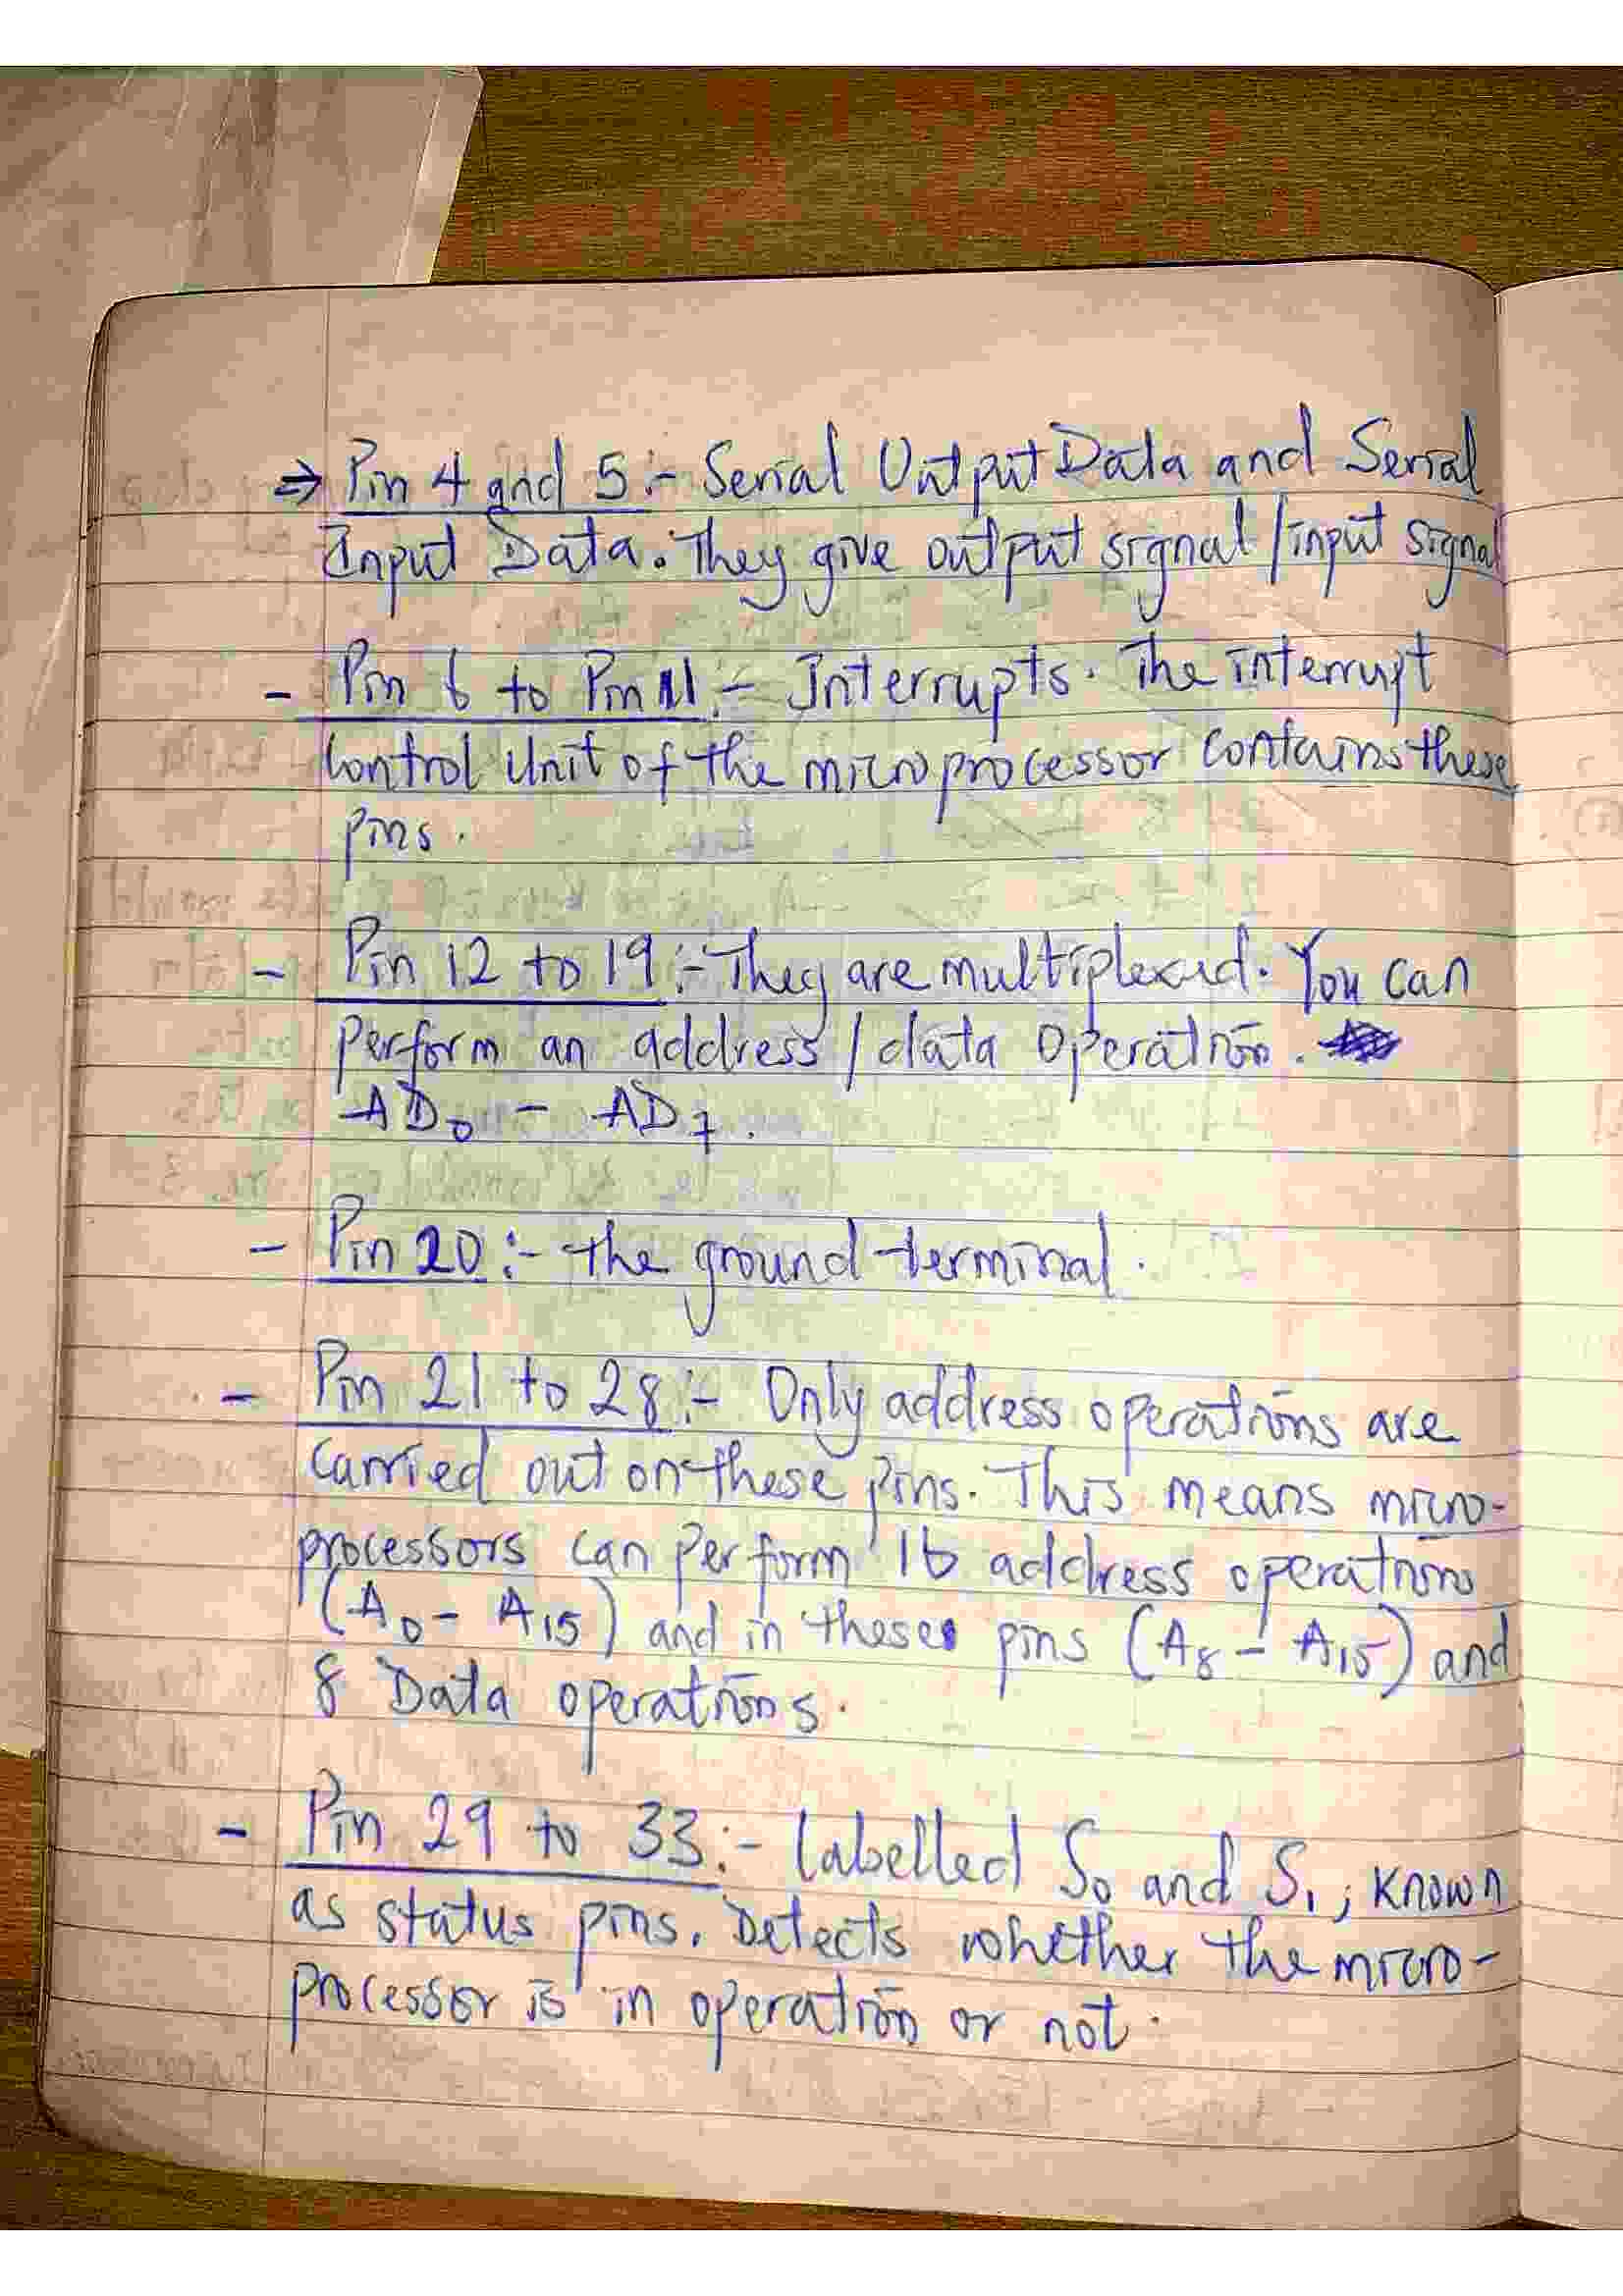 ⇒ Pin 4 and 5:- Serial Output Data and Serial
Input Data. They give output signal / input signal
- Pin 6 to Pin 11:- Interrupts. The interrupt
Control Unit of the microprocessor contains these
pins.
- Pin 12 to 19:- They are multiplexed. You can
perform an address / data operation.
AD₀ - AD₇.
- Pin 20:- the ground terminal.
- Pin 21 to 28:- Only address operations are
carried out on these pins. This means micro-
processors can perform 16 address operations
(A₀ - A₁₅) and in these pins (A₈ - A₁₅) and
8 Data operations.
- Pin 29 to 33:- labelled S₀ and S₁, known
as status pins. Detects whether the micro-
processor is in operation or not.